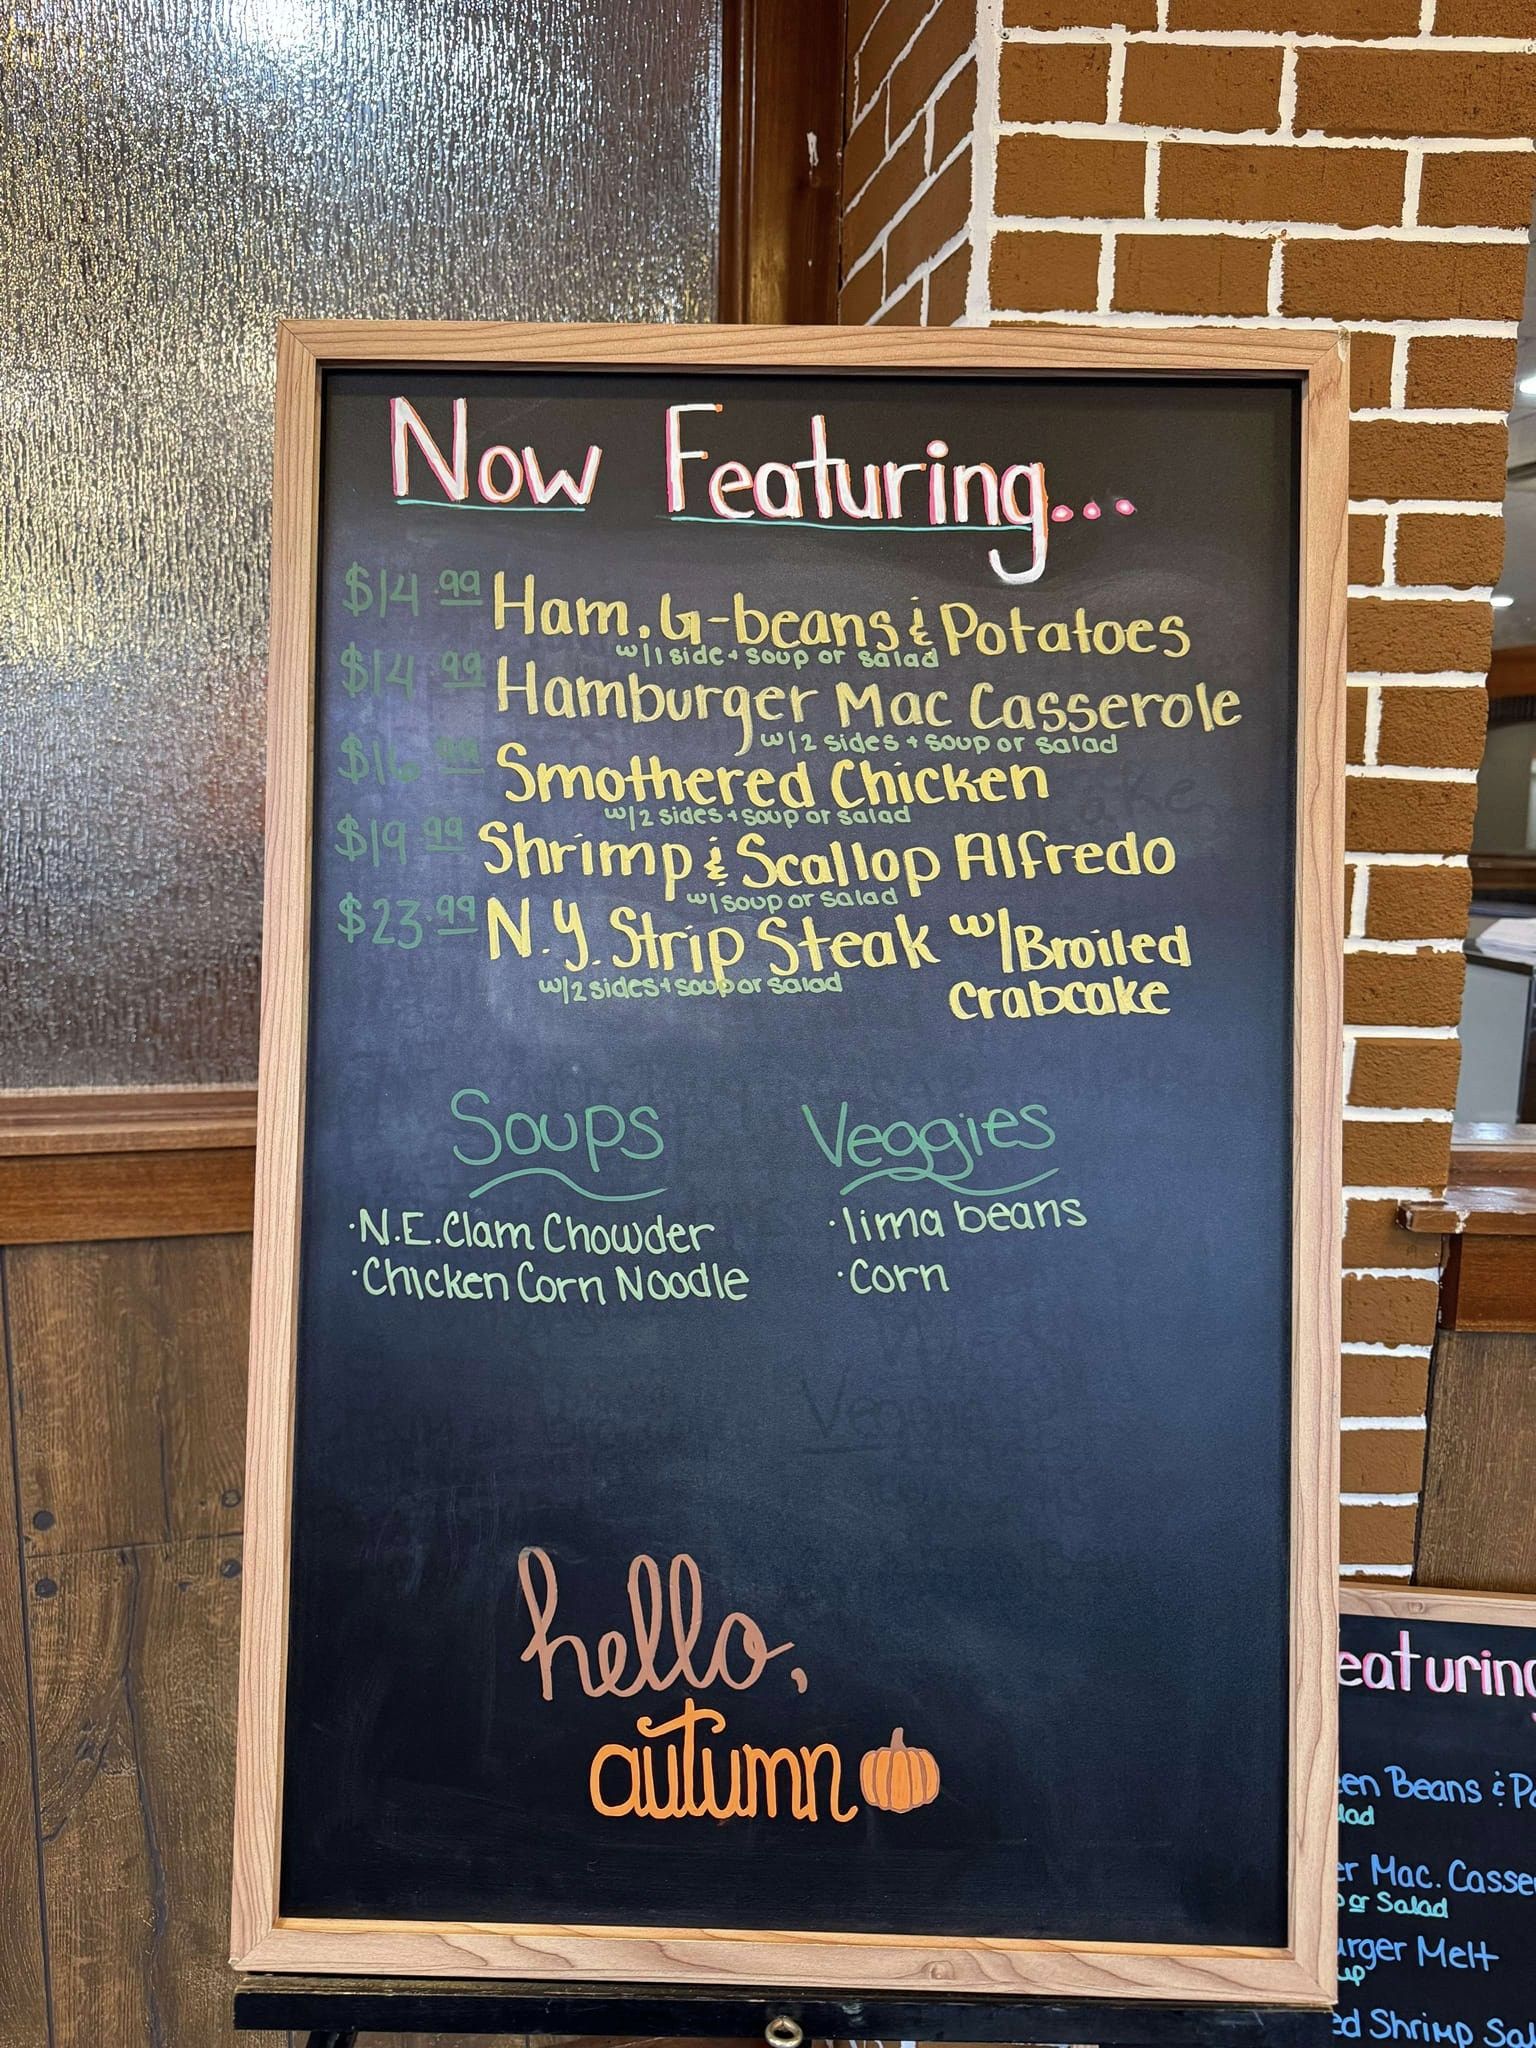 Now Featuring...
$14.99 Ham, G-beans & Potatoes
w/1 side + soup or salad
$14.99 Hamburger Mac Casserole
w/2 sides + soup or salad
$16.99 Smothered Chicken
w/2 sides + soup or salad
$19.99 Shrimp & Scallop Alfredo
w/soup or salad
$23.99 N.Y. Strip Steak w/Broiled
Crabcake
w/2 sides + soup or salad
Soups
·N.E. Clam Chowder
·Chicken Corn Noodle
Veggies
·lima beans
·corn
hello,
autumn
eaturing
en Beans & Po
lad
er Mac. Casse
or Salad
urger Melt
up
ed Shrimp Sal